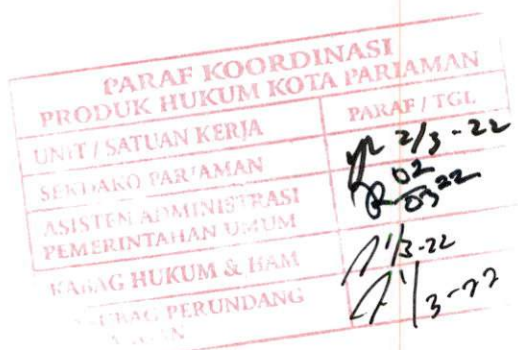 PARAF KOORDINASI
PRODUK HUKUM KOTA PARIAMAN
UNIT / SATUAN KERJA PARAF / TGL
SEKDAKO PARIAMAN 2/3-22
ASISTEN ADMINISTRASI
PEMERINTAHAN UMUM 02 03 22
KABAG HUKUM & HAM 1/3-22
PERUNDANG 1/3-22